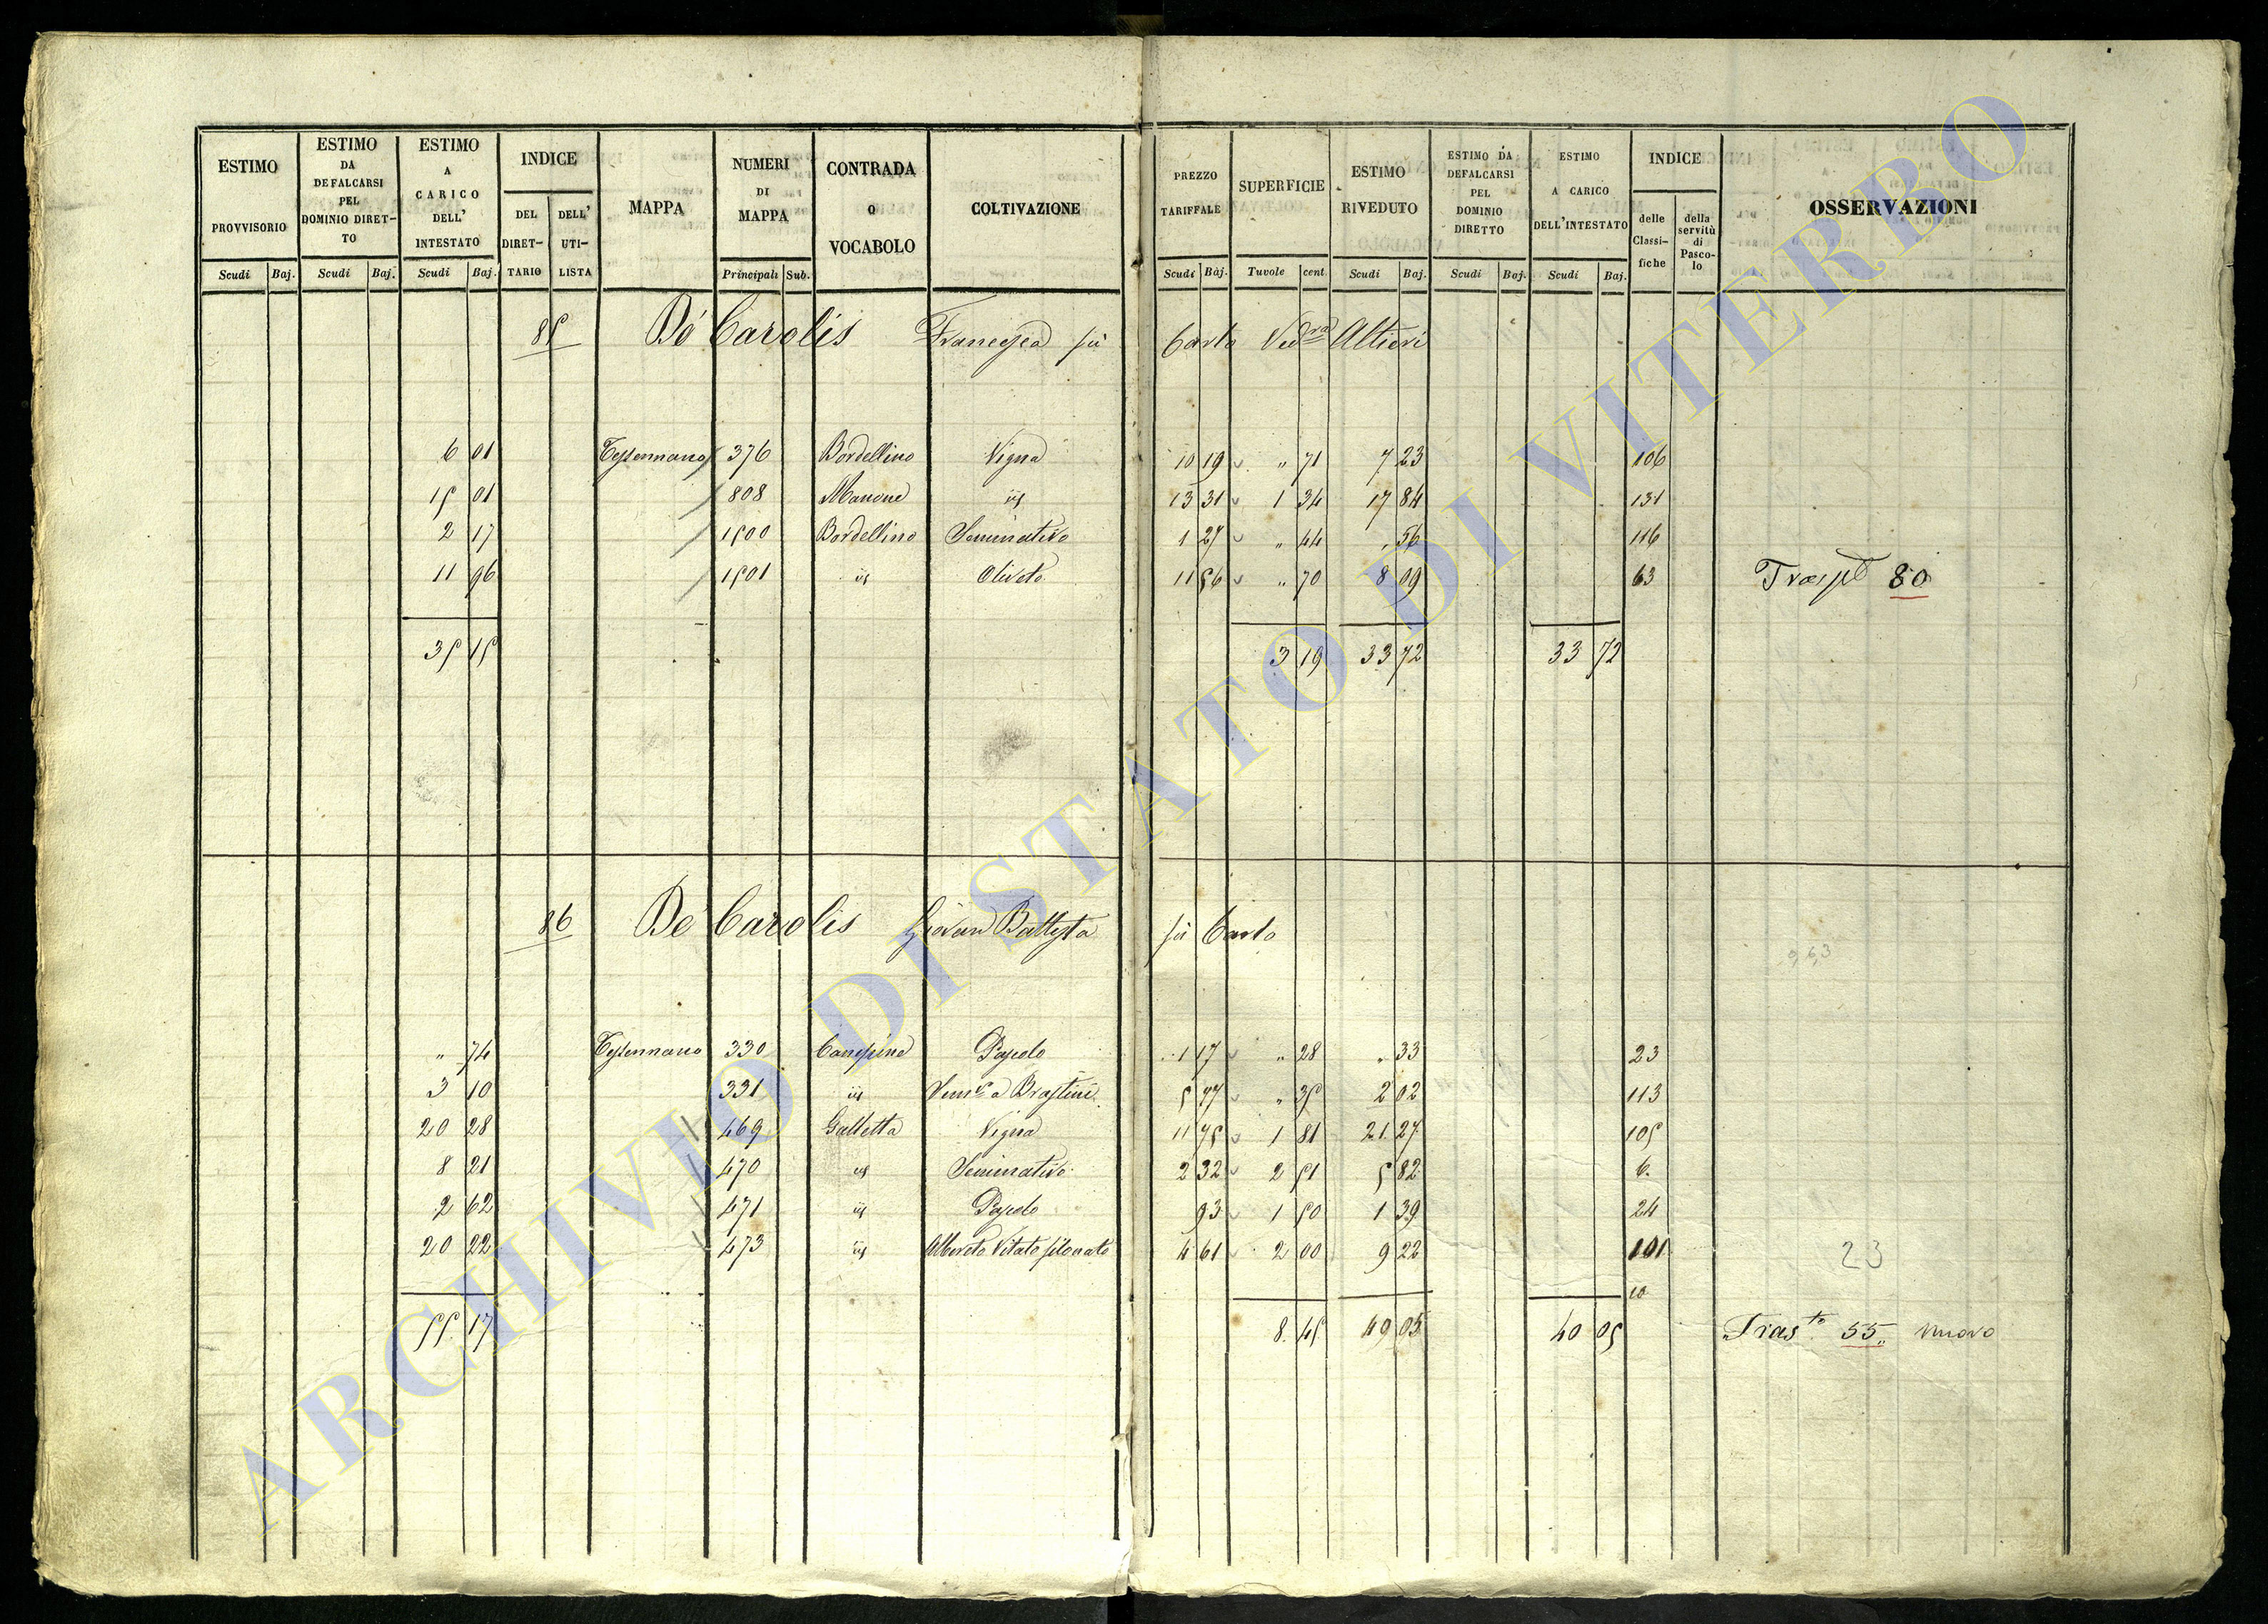 ESTIMO PROVVISORIO Scudi Baj.
ESTIMO DA DEFALCARSI PEL DOMINIO DIRETTO Scudi Baj.
ESTIMO A CARICO DELL' INTESTATO Scudi Baj.
INDICE DEL DIRETTARIO DELL' UTILISTA
MAPPA
NUMERI DI MAPPA Principali Sub.
CONTRADA O VOCABOLO
COLTIVAZIONE
PREZZO TARIFFALE Scudi Baj.
SUPERFICIE Tavole cent
ESTIMO RIVEDUTO Scudi Baj.
ESTIMO DA DEFALCARSI PEL DOMINIO DIRETTO Scudi Baj.
ESTIMO A CARICO DELL'INTESTATO Scudi Baj.
INDICE delle Classifiche della servitù di Pascolo
OSSERVAZIONI
85 De Carolis Francesca fu Carlo Ved.ra Altieri
6 01 Tessennano 376 Bordellino Vigna 10 19 " 71 7 23 106
15 01 808 Manone id 13 31 1 34 17 84 131
2 17 1500 Bordellino Seminativo 1 27 " 44 " 56 116
11 96 1501 id Oliveto 11 56 " 70 8 09 63 Trasp.to 80
35 15 3 19 33 72 33 72
86 De Carolis Giovan Battista fu Carlo
" 74 Tessennano 330 Pascolo 1 17 " 28 " 33 23
3 10 331 id 5 77 " 35 2 02 113
20 28 469 Galletta Vigna 11 75 1 81 21 27 105
8 21 470 id Seminativo 2 32 2 51 5 82 6
2 62 471 id Pascolo 93 1 50 1 39 24
20 22 473 id Alberato Vitato 4 61 2 00 9 22 101 23
10
55 17 8 45 40 05 40 05 Tras.to 55 nuovo
ARCHIVIO DI STATO DI VITERBO